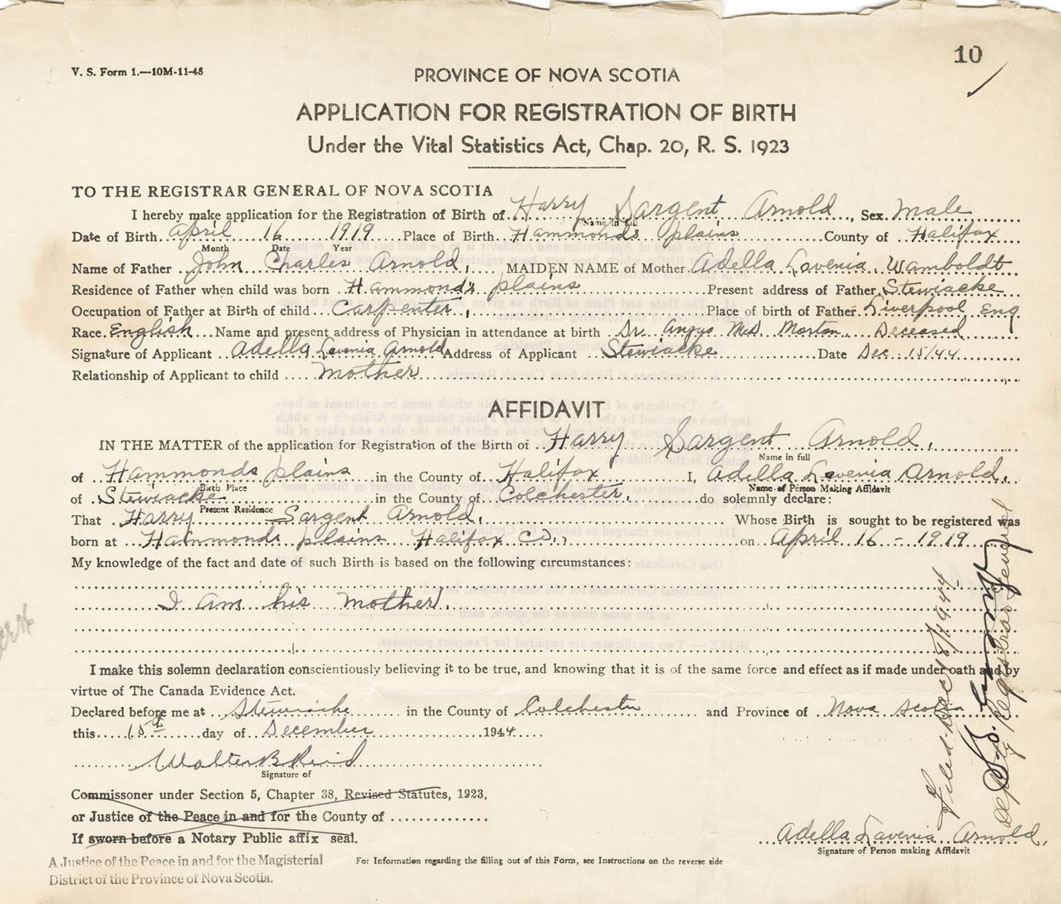 10
V. S. Form 1.—10M-11-45
PROVINCE OF NOVA SCOTIA
APPLICATION FOR REGISTRATION OF BIRTH
Under the Vital Statistics Act, Chap. 20, R. S. 1923
TO THE REGISTRAR GENERAL OF NOVA SCOTIA
I hereby make application for the Registration of Birth of Harry Sargent Arnold, Sex Male
Name in full
Date of Birth April 16 1919 Place of Birth Hammonds plains County of Halifax
Month Date Year
Name of Father John Charles Arnold, MAIDEN NAME of Mother Adella Lavenia Wamboldt
Residence of Father when child was born Hammonds plains Present address of Father Stewiacke
Occupation of Father at Birth of child Carpenter, Place of birth of Father Liverpool Eng
Race English Name and present address of Physician in attendance at birth Dr. Angus Deceased
Signature of Applicant Adella Lavenia Arnold Address of Applicant Stewiacke Date Dec. 15/44
Relationship of Applicant to child mother
AFFIDAVIT
IN THE MATTER of the application for Registration of the Birth of Harry Sargent Arnold,
Name in full
of Hammonds plains in the County of Halifax I, Adella Lavenia Arnold,
Birth Place Name of Person Making Affidavit
of Stewiacke in the County of Colchester, do solemnly declare:
Present Residence
That Harry Sargent Arnold, Whose Birth is sought to be registered was
born at Hammonds plains Halifax Co., on April 16 - 1919
My knowledge of the fact and date of such Birth is based on the following circumstances:
I am his mother.
I make this solemn declaration conscientiously believing it to be true, and knowing that it is of the same force and effect as if made under oath and by
virtue of The Canada Evidence Act.
Declared before me at Stewiacke in the County of Colchester and Province of Nova Scotia
this 15th day of December 1944
Walter B Reid
Signature of
Commissoner under Section 5, Chapter 38, Revised Statutes, 1923,
or Justice of the Peace in and for the County of
If sworn before a Notary Public affix seal.
Adella Lavenia Arnold,
Signature of Person making Affidavit
A Justice of the Peace in and for the Magisterial
District of the Province of Nova Scotia.
For Information regarding the filling out of this Form, see Instructions on the reverse side
Filed Dec 18/1944
Deputy Registrar General